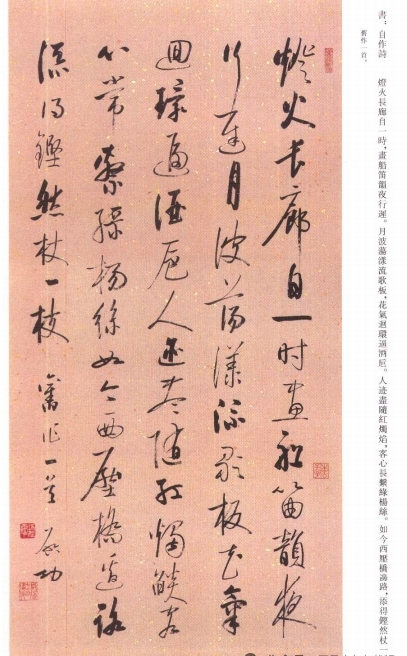 書：自作詩　燈火長廊自一時，畫船笛韻夜行遲。月波蕩漾流歌板，花氣迴環逼酒卮。人迹盡隨紅燭焰，客心長繫綠楊絲。如今西壓橋邊路，添得鏗然杖一
舊作一首。
燈火長廊自一時畫船笛韻夜
行遲月波蕩漾流歌板花氣
迴環逼酒卮人迹盡隨紅燭燄客
心常繫綠楊絲如今西壓橋邊路
添得鏗然杖一枝　舊作一首　啟功